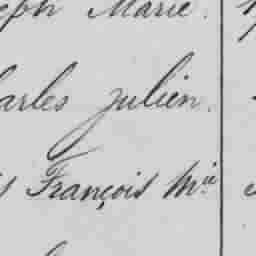 eph Marie.
arles julien.
s François Mie